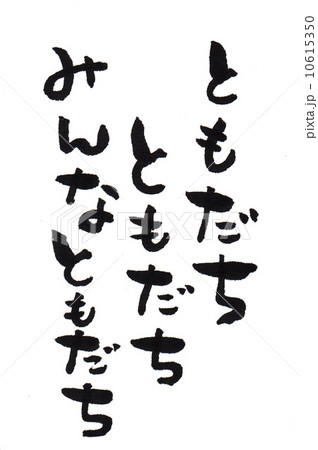 ともだち
ともだち
みんなともだち
PIXTA
pixta.jp - 10615350